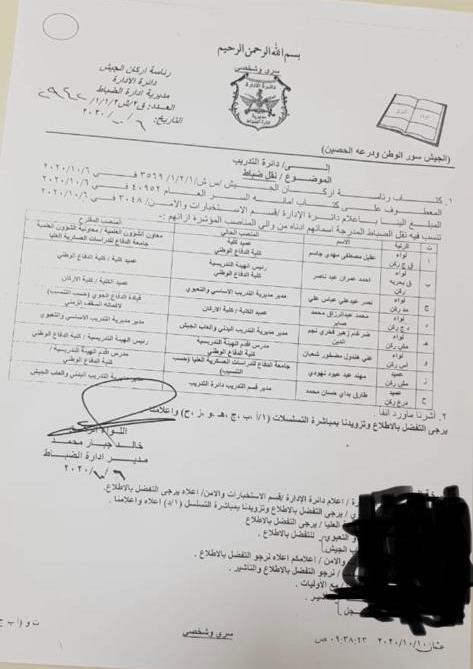 بسم الله الرحمن الرحيم
سري وشخصي
رئاسة اركان الجيش
دائرة الادارة
مديرية ادارة الضباط
العدد:
التاريخ: ٢٠٢٠/
(الجيش سور الوطن ودرعه الحصين)
الـــى/ دائرة التدريب
الموضوع / نقل ضباط
١. كتاب رئاسة اركان الجيش/ ٣٥٦٩/١/٢/١ فـي ٢٠٢٠/١٠/٦
المعطوف على كتاب امانه السر العام ٤٠٩٥٢ في ٢٠٢٠/١٠/٦
المبلغ الينا باعلام دائرة الادارة /قسم الاستخبارات والامن/ ٣٠٤٨ في ٢٠٢٠/١٠/٦
تنسب فيه نقل الضباط المدرجة اسمائهم ادناه من والى المناصب المؤشرة ازائهم :-
ت الرتبة الاسم المنصب الحالي المنصب المقترح
أ لواء عقيل مصطفى مهدي جاسم عميد كلية كلية الدفاع الوطني معاون الشؤون العلمية / معاونية الشؤون العلمية جامعة الدفاع للدراسات العسكرية العليا
ب لواء احمد عمران عبد ناصر رئيس الهيئة التدريسية كلية الدفاع الوطني عميد كلية / كلية الدفاع الوطني
ج لواء نصر عبدعلي عباس علي مدير مديرية التدريب الاساسي والتعبوي عميد الكلية / كلية الاركان
د لواء محمد عبدالرزاق محمد عميد الكلية / كلية الاركان قيادة الدفاع الجوي (حسب التنسيب)
هـ لواء ضرغام زهير فخري نجم الدين مدير مديرية التدريب البدني والعاب الجيش مدير مديرية التدريب الاساسي والتعبوي
و لواء علي هندول مصفور شعبان مدرس اقدم الهيئة التدريسية كلية الدفاع الوطني رئيس الهيئة التدريسية / كلية الدفاع الوطني
ز عميد مهند عبد عبيود جامعة الدفاع للدراسات العسكرية العليا (حسب التنسيب) مدرس اقدم الهيئة التدريسية / كلية الدفاع الوطني
ح عميد طارق بداي حسان محمد مدير قسم التدريب دائرة التدريب مدير مديرية التدريب البدني والعاب الجيش
٢. أشرنا ماورد انفا .
يرجى التفضل بالاطلاع وتزويدنا بمباشرة التسلسلات (١/أ ، ب ، ج ، هـ ، و ، ز ، ح) واعلامنا
اللواء
خالد جبار محمد
مدير ادارة الضباط
٢٠٢٠/
/ اعلام دائرة الإدارة /قسم الاستخبارات والامن/ اعلاه يرجى التفضل بالاطلاع .
/ يرجى التفضل بالاطلاع وتزويدنا بمباشرة التسلسل (١/د) اعلاه واعلامنا .
العليا / يرجى التفضل بالاطلاع
والتعبوي / للتفضل بالاطلاع .
الجيش
والامن / اعلامكم اعلاه نرجو التفضل بالاطلاع .
/ نرجو التفضل بالاطلاع والتأشير .
مع الأوليات .
سري وشخصي
٢٠٢٠/١٠/١٠ ٠٩:٣٨:٢٣ ص